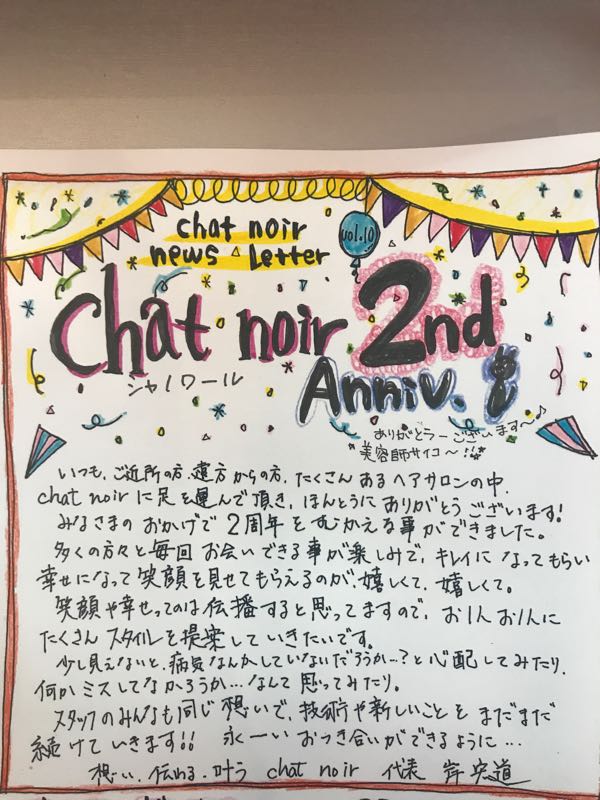 chat noir
news Letter
vol.10
Chat noir 2nd
シャノワール
Anniv.
ありがとうーございます〜♪
"美容師サイコ〜!!"
いつも、ご近所の方、遠方からの方、たくさんあるヘアサロンの中、
chat noirに足を運んで頂き、ほんとうにありがとうございます!
みなさまのおかげで2周年をむかえる事ができました。
多くの方々と毎回お会いできる事が楽しみで、キレイになってもらい
幸せになって笑顔を見せてもらえるのが嬉しくて、嬉しくて。
笑顔や幸せってのは伝播すると思ってますので、お1人お1人に
たくさんスタイルを提案していきたいです。
少し見えないと、病気なんかしていないだろうか…?と心配してみたり、
何かミスしてなかろうか…なんて思ってみたり。
スタッフのみんなも同じ想いで、技術や新しいことをまだまだ
続けていきます!! 永ーいおつき合いができるように…
想い、伝わる、叶う chat noir 代表 岸 宏道